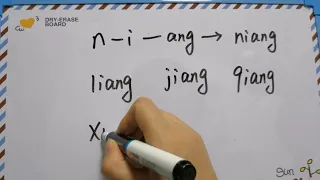 DRY-ERASE
BOARD
n - i - ang → niang
liang jiang qiang
Xi
Sun